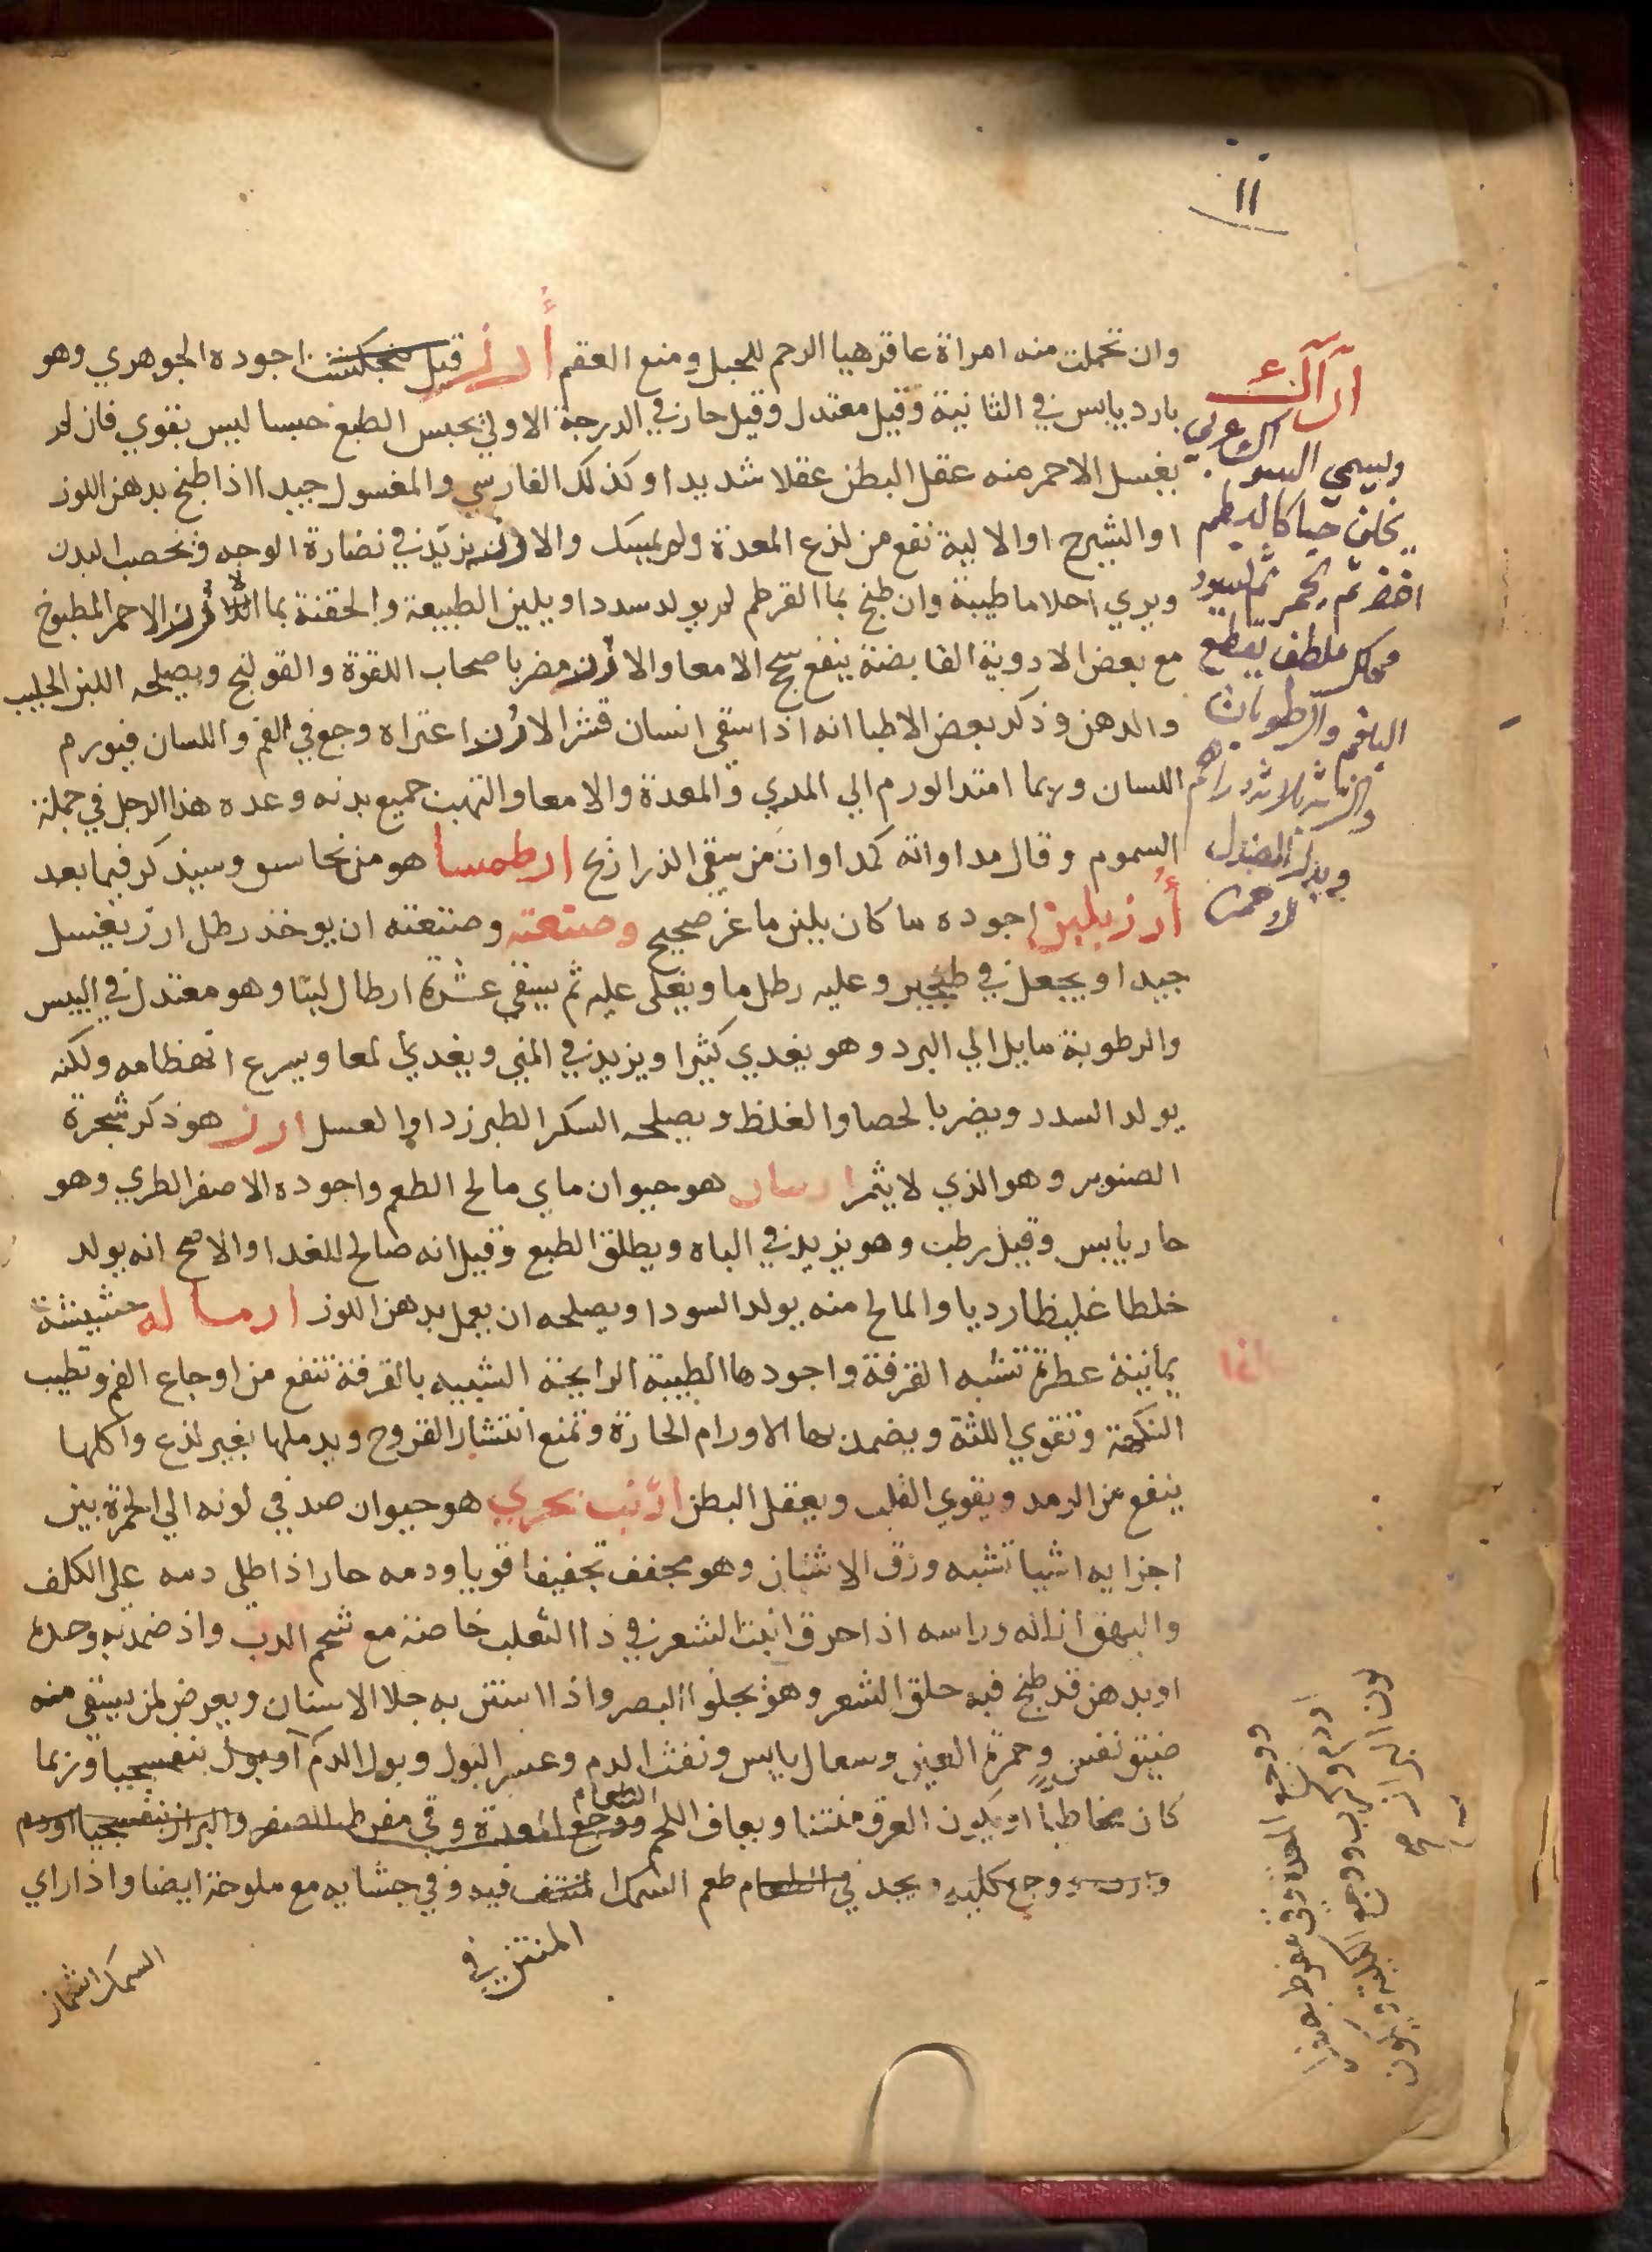 ١١
وان تحملت منه امراة عاقر هيا الرحم للحبل ومنع العقم أرز قيل اجوده الجوهري وهو
بارد يابس في الثانية وقيل معتدل وقيل حار في الدرجة الاولي يحبس الطبع حبسا ليس بقوي فان لم
يغسل الاحمر منه عقل البطن عقلا شديدا وكذلك الفارسي والمغسول جيدا اذا طبخ بدهن اللوز
او الشيرج او الالية نفع من لذع المعدة ولم يمسك والارز يزيد في نضارة الوجه ويخصب البدن
ويري احلاما طيبة وان طبخ بما القرطم لم يولد سددا ويلين الطبيعة والحقنة بما الارز الاحمر المطبوخ
مع بعض الادوية القابضة ينفع سحج الامعا والارز مضر باصحاب اللقوة والقولنج ويصلحه اللبن الحليب
والدهن وذكر بعض الاطبا انه اذا سقي انسان قشر الارز اعتراه وجع في الفم واللسان فيورم
اللسان وربما امتد الورم الي المري والمعدة والامعا والتهب جميع بدنه وعده هذا الرجل في جملة
السموم وقال مداواته كمداواة من سقي الذراريح ارطمسا هو منحاسو وسيذكر فيما بعد
أرز بلبن اجوده ما كان بلبن ماعز صحيح وصنعته وصنعته ان يوخذ رطل ارز يغسل
جيدا ويجعل في طنجير وعليه رطل ما ويغلي عليه ثم يسقي عشرة ارطال لبنا وهو معتدل في اليبس
والرطوبة مايل الي البرد وهو يغدي كثيرا ويزيد في المني ويغدي لمعا ويسرع انهظامه ولكنه
يولد السدد ويضر بالحصا والغلظ ويصلحه السكر الطبرزد او العسل ارز هو ذكر شجرة
الصنوبر وهو الذي لا يثمر ارسان هو حيوان ماي مالح الطعم واجوده الاصفر الطري وهو
حار يابس وقيل رطب وهو يزيد في الباه ويطلق الطبع وقيل انه صالح للغدا والاصح انه يولد
خلطا غليظا رديا والمالح منه يولد السودا ويصلحه ان يعمل بدهن اللوز ارماله حشيشة
يمانية عطرة تشبه القرفة واجودها الطيبة الرايحة الشبيه بالقرفة تنفع من اوجاع الفم وتطيب
النكهة وتقوي اللثة ويضمد بها الاورام الحارة وتمنع انتشار القروح ويدملها بغير لذع واكلها
ينفع من الرمد ويقوي القلب ويعقل البطن ارنب بحري هو حيوان صدفي لونه الي الحمرة بين
اجزايه اشيا تشبه ورق الاشنان وهو مجفف تجفيفا قويا ودمه حار اذا طلي دمه علي الكلف
والبهق ازاله وراسه اذا احرق انبت الشعر في دا الثعلب خاصة مع شحم الدب واذ ضمد به وحده
او بدهن قد طبخ فيه حلق الشعر وهو يجلوا البصر واذا استن به جلا الاسنان ويعرض لمن يسقي منه
ضيق نفس وحمرة العين وسعال يابس ونفث الدم وعسر البول وبول الدم او بول بنفسجيا وربما
كان مخاطيا او يكون العرق منتنا ويعاف اللحم الطعام ووجع المعدة وقي مفرط الصفر والبراز بنفسجيا
وجع كليه ويجد في الطعام طعم السمك المنتف فيه وفي جشايه مع ملوحة ايضا واذا راي
المنتن في
السمك اشماز
اراك
ويسمي السواك عربي
يخلف حبا كالبطم
اخضر ثم يحمر ثم يسود
محلل ملطف يقطع
البلغم والرطوبات
والشربة ثلاثة دراهم
ووجع المعدة وقي مفرط بصفرا
ووجع الكلية ويكون
لون البراز